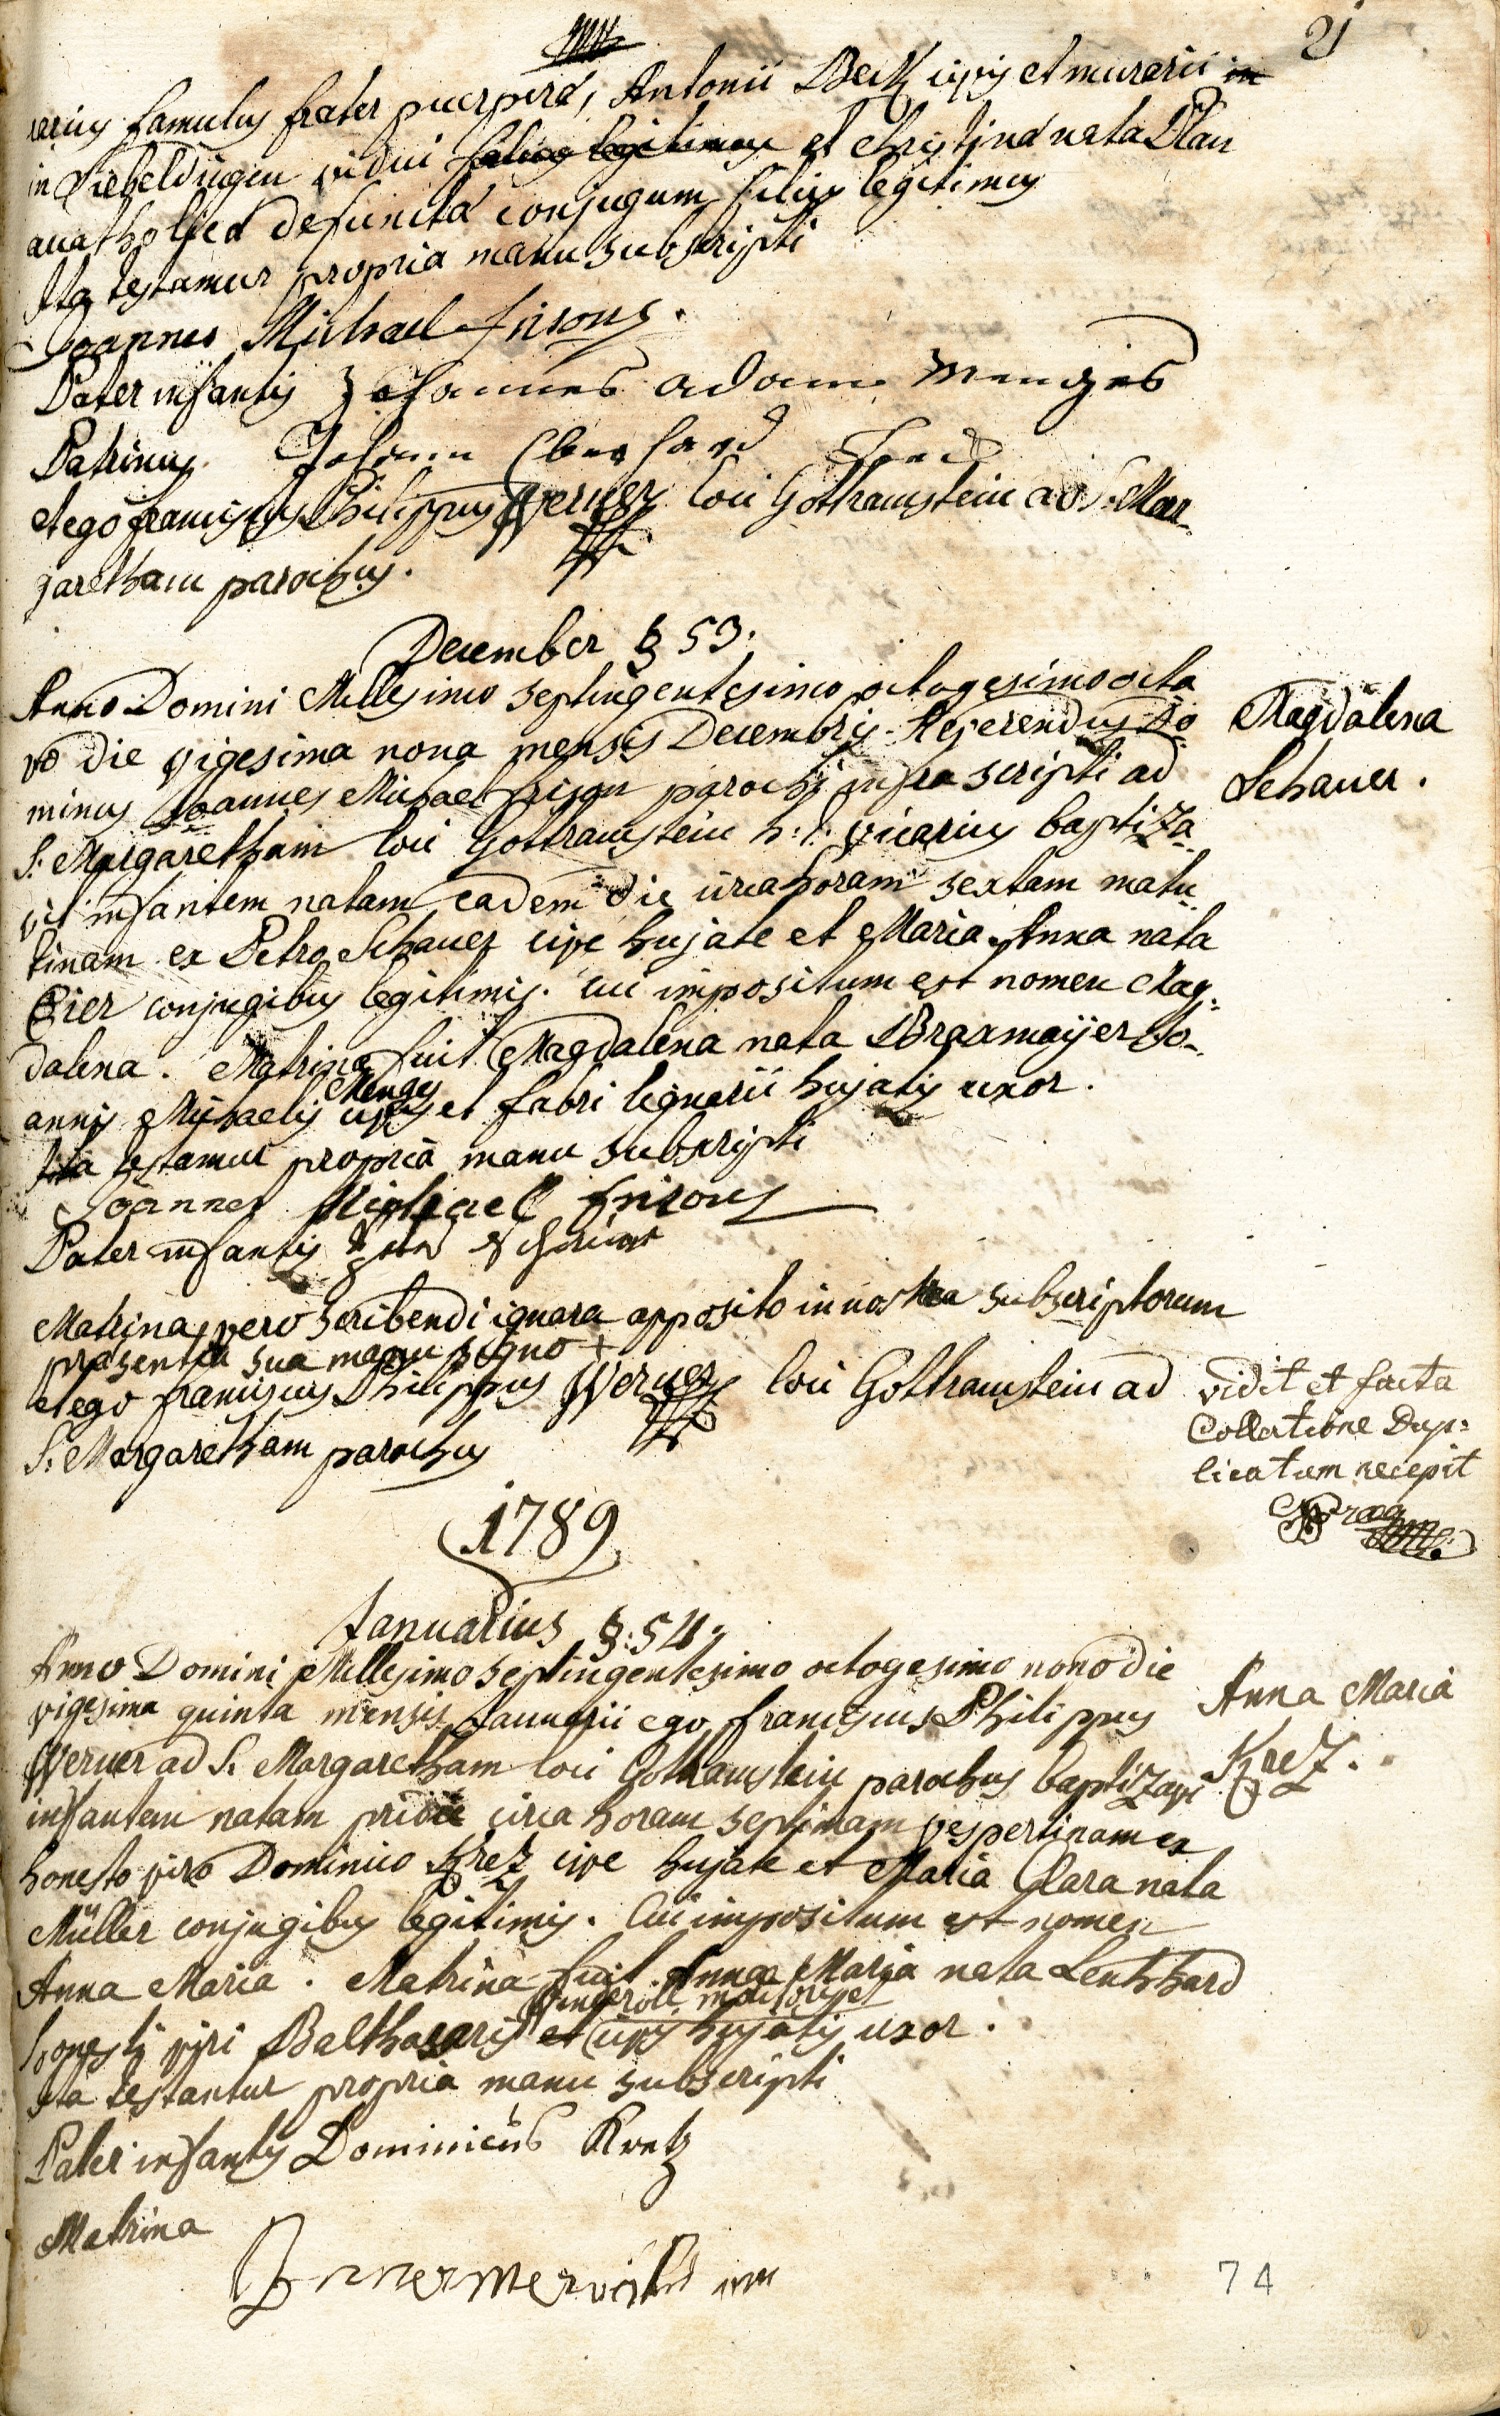 21
famulus frater puerperæ, Antonii Beck civis et murarii in
in Siebeldingen vidui et Christinæ nata
acatholica defuncta conjugum filius legitimus
Ita testamur propria manu subscripti
Joannes Michael Frisons.
Pater infantis Johannes adam Menges
Patrinus Johann
et ego franciscus Philippus Werner loci Gottramstein ad S. Mar-
garetham parochus.
December § 53.
Anno Domini Millesimo septingentesimo octogesimo octa
vo die vigesima nona mensis Decembris Reverendus Do
minus Joannes Michael Frison parochi infra scripti ad
S. Margaretham loci Gottramstein h: t: vicarius baptiza-
vit infantem natam eadem die circa horam sextam matu-
tinam ex Petro Schauer cive hujate et Maria Anna nata
conjugibus legitimis. cui impositum est nomen Mag-
dalena. Matrina fuit Magdalena nata Braxmaÿer Jo-
annis Michaelis Menges civis et fabri lignarii hujatis uxor.
Ita testamur propria manu subscripti
Joannes Michael Frisons
Pater infantis
Matrina vero scribendi ignara apposito in nostra subscriptorum
præsentia sua manu signo +
et ego franciscus Philippus Werner loci Gottramstein ad
S. Margaretham parochus
Magdalena
Schauer.
vidit et facta
Collatione Dup=
licatum recepit
1789
Januarius §. 54.
Anno Domini Millesimo septingentesimo octogesimo nono die
vigesima quinta mensis Januarii ego franciscus Philippus
Werner ad S. Margaretham loci Gottramstein parochus baptizavi
infantem natam pridie circa horam septimam vespertinam ex
honesto viro Dominico Krez cive hujate et Maria Clara nata
Müller conjugibus legitimis. Cui impositum est nomen
Anna Maria. Matrina fuit Anna Maria nata Lenhhard
honesti viri Balthasaris et civis hujatis uxor.
Ita testantur propria manu subscripti
Pater infantis Dominicus Kretz
Matrina
Anna Maria
Krez.
74